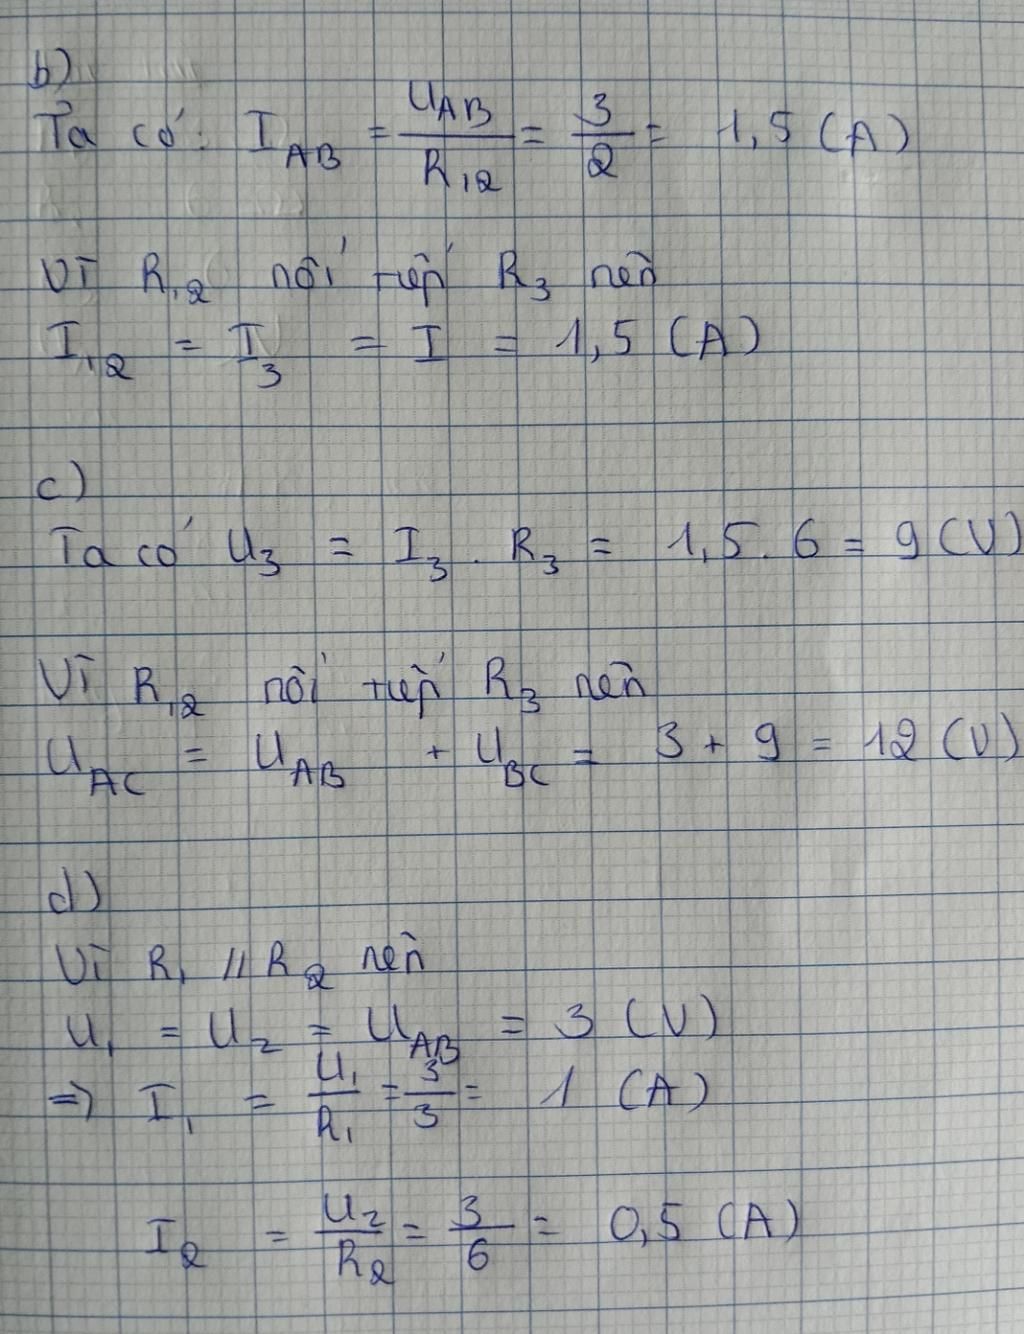 b)
Ta có: I_AB = U_AB / R_12 = 3 / 2 = 1,5 (A)
Vì R_12 nối tiếp R_3 nên
I_12 = I_3 = I = 1,5 (A)
c)
Ta có U_3 = I_3 . R_3 = 1,5 . 6 = 9 (V)
Vì R_12 nối tiếp R_3 nên
U_AC = U_AB + U_BC = 3 + 9 = 12 (V)
d)
Vì R_1 // R_2 nên
U_1 = U_2 = U_AB = 3 (V)
=> I_1 = U_1 / R_1 = 3 / 3 = 1 (A)
I_2 = U_2 / R_2 = 3 / 6 = 0,5 (A)